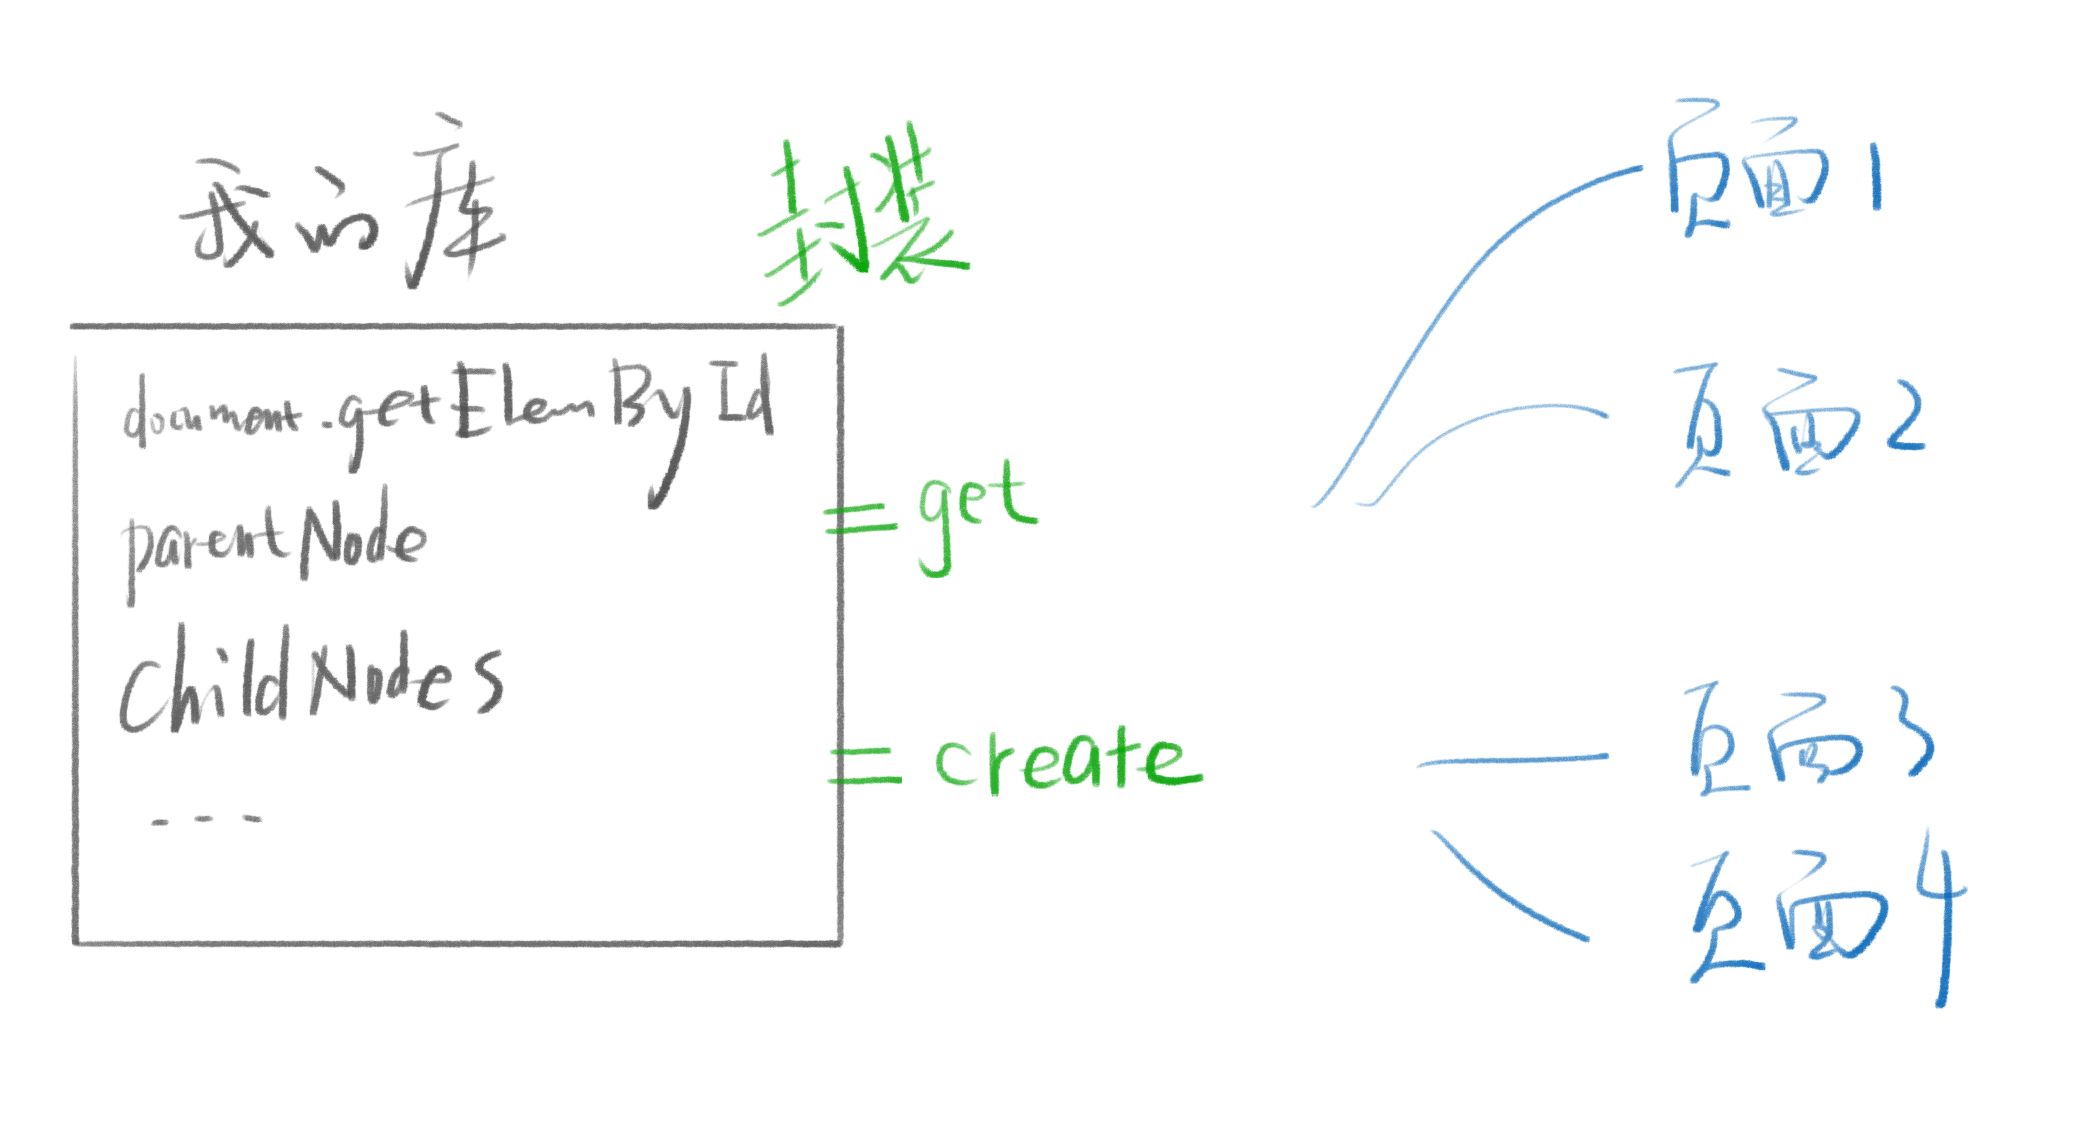 我的库
封装
document.getElemById
parentNode
childNodes
---
= get
= create
页面1
页面2
页面3
页面4